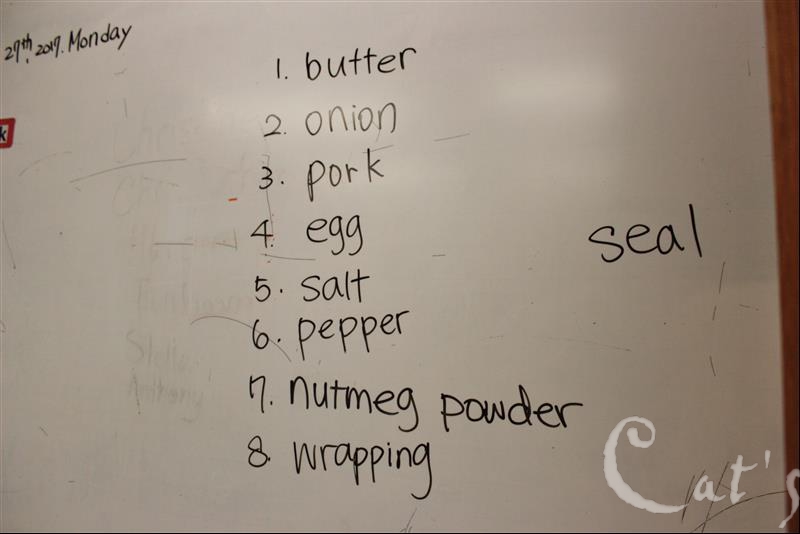 27th, 2017. Monday
1. butter
2. onion
3. pork
4. egg
seal
5. salt
6. pepper
7. nutmeg powder
8. wrapping
Cat's
k